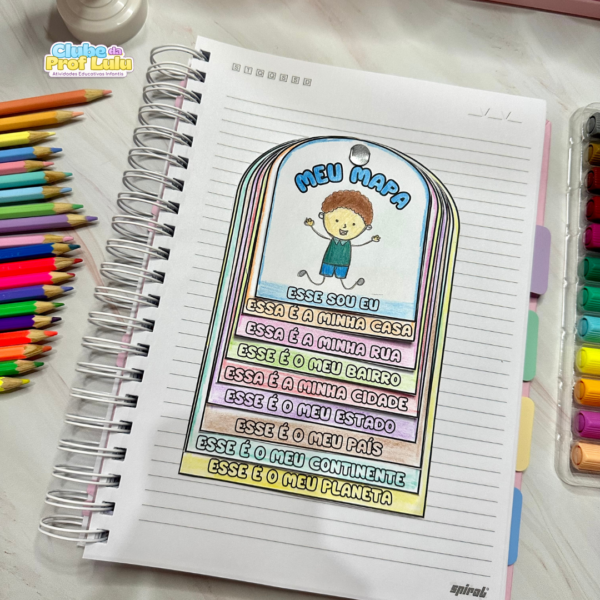 Clube da
Prof Lulu
Atividades Educativas Infantis
MEU MAPA
ESSE SOU EU
ESSA É A MINHA CASA
ESSA É A MINHA RUA
ESSE É O MEU BAIRRO
ESSA É A MINHA CIDADE
ESSE É O MEU ESTADO
ESSE É O MEU PAÍS
ESSE É O MEU CONTINENTE
ESSE É O MEU PLANETA
spiral